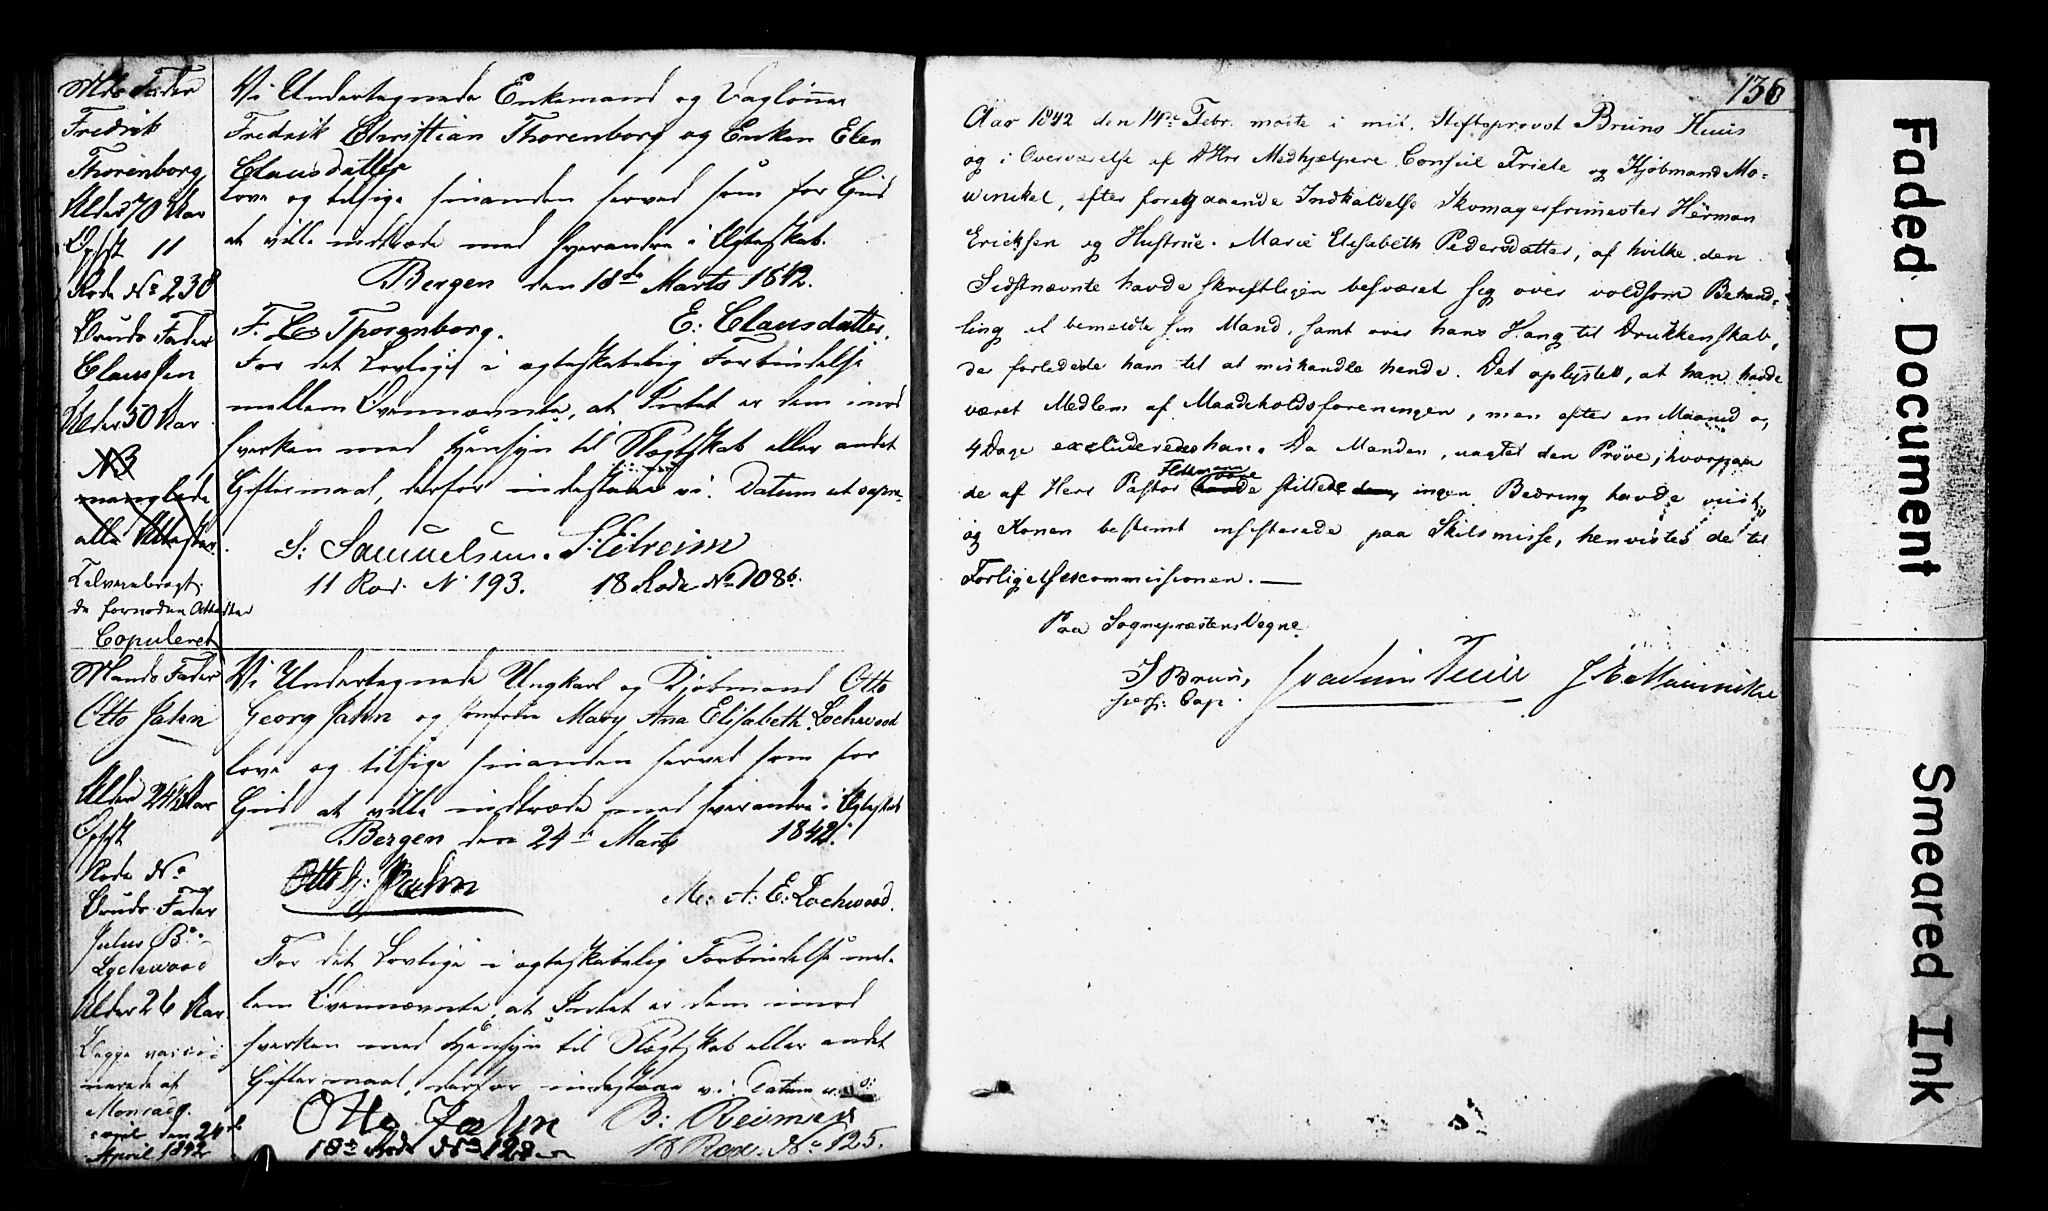 Mds Fader
Fredrik
Thorenborg
Alder 70 Aar
Opfst 11
Rode No 238
Bruds Fader
Claussen
Alder 50 Aar
NB
manglede
alle Attester
Tilveiebragt
de fornødne Attester
Copuleret
Vi Undertegnede Enkemand og Vaglønner
Fredrik Christian Thorenborg og Enken Elen
Clausdatter
love og tilsige hinanden herved som for Gud
at ville indtræde med hverandre i Ægteskab.
Bergen den 18de Marts 1842.
F. C. Thorenborg. E: Clausdatter.
For det Lovlige i ægteskabelig Forbindelse
mellem Ovennævnte, at Intet er dem imod
hverken med Hensyn til Slægtskab eller andet
Giftermaal, derfor indestaae vi. Datum ut supra.
S: Samuelsen. S: Eitreim
11 Rod. No 193. 18 Rode No 108b.
Mands Fader
Otto Jahn
Alder 24½ Aar
Opfst
Rode No
Bruds Fader
Julus B.
Lochwood
Alder 26 Aar
Begge vacci-
nerede af
den 24de
April 1842
Vi Undertegnede Ungkarl og Kjøbmand Otto
Georg Jahn og Jomfrue Mary Ana Elisabeth Lochwood
love og tilsige hinanden herved som for
Gud at ville indtræde med hverandre i Ægteskab
Bergen den 24de Marts 1842.
Otto G: Jahn
M: A: E: Lochwood.
For det Lovlige i ægteskabelig Forbindelse mel-
lem Ovennævnte, at Intet er dem imod
hverken med Hensyn til Slægtskab eller andet
Giftermaal, derfor indestaae vi. Datum u. s.
Otto Jahn B: Reimers
18de Rode No 128 18 Rode. No 125.
136
Aar 1842 den 14de Febr. mødte i mit, Stiftsprovst Bruns Huus
og i Overværelse af DHrr Medhjælpere Consul Friele og Kjøbmand Mo-
winckel, efter foregaaende Indkaldelse Skomagerfrimester Herman
Ericksen og Hustrue Marie Elisabeth Pedersdatter, af hvilke den
Sidstnævnte havde skriftligen besværet sig over voldsom Behand-
ling af bemeldte sin Mand, samt over hans Hang til Drukkenskab,
der forledede ham til at mishandle hende. Det oplystes, at han havde
været Medlem af Maadeholdsforeningen, men efter en Maaned og
4 Dage excluderedes han. Da Manden, uagtet den Prøve, hvorpaa
de af Herr Pastor Flottmann vare stillede, ingen Bedring havde viist,
og Konen bestemt insisterede paa Skilsmisse, henvistes de til
Forligelsescommissionen. —
Paa Sognepræstens Vegne
J Brun, Joachim Friele J E Mowinckel
pers: Cap.
Faded Document
Smeared Ink